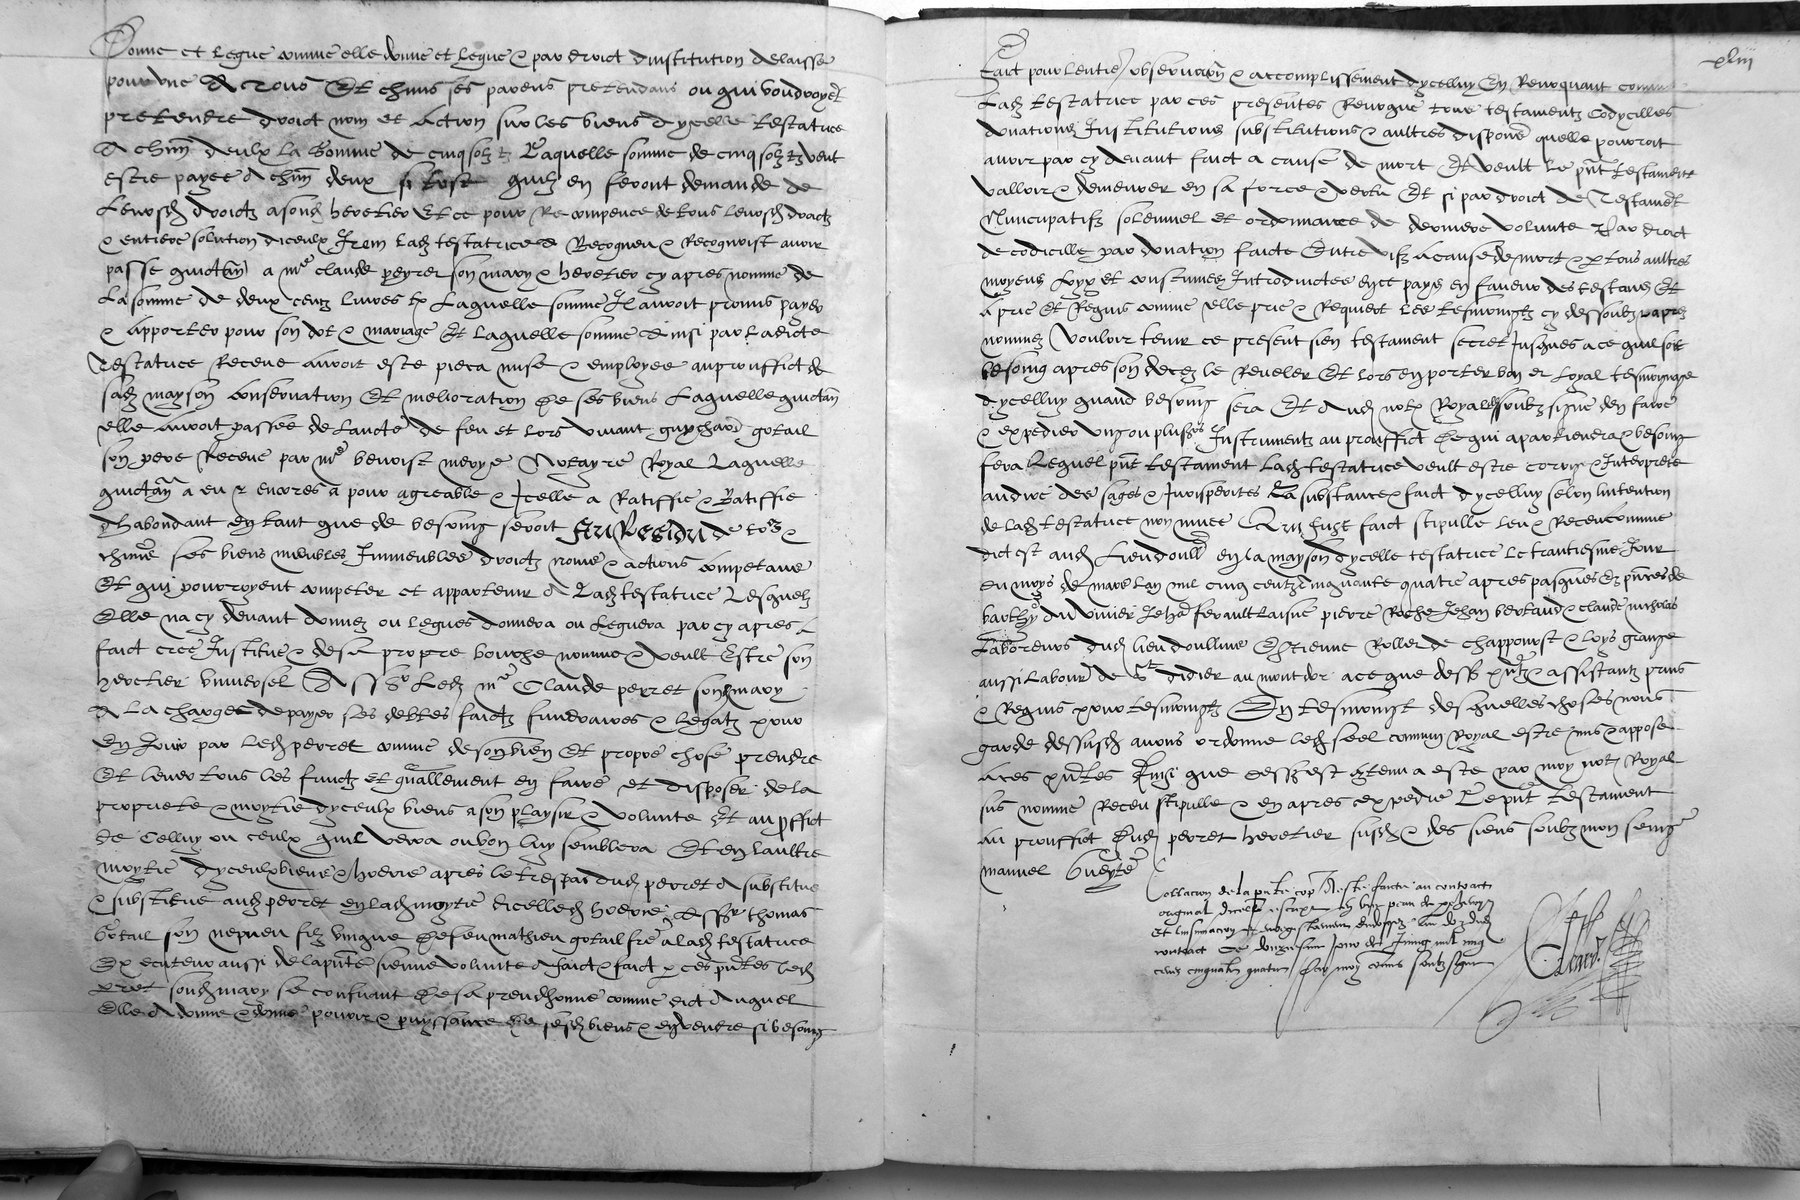 Donne et legue comme elle donne et legue & par droict dinstitution delaisse
pour une A Tous Et chuns ses parens pretendans ou qui voudroyet
pretendre droict nom et Action sur les biens dycelle testatrice
A chun deulx la Somme de cinq solz tz Laquelle somme de cinq solz tz veut
estre payee A chun deux si tost quilz en feront demande de
Leursdz droictz a sondz heretier Et ce pour Recompence de tous leursdz droictz
& entiere solution diceulx Item ladz testatrice a Recogneu & Recognoist avoir
passe quictan a me claude peyret son mary & heretier cy apres nomme de
La somme de deux centz livres tz Laquelle somme Il auroit promis payer
& apporter pour son dot & mariage Et laquelle somme Ainsi par ladicte
Testatrice Receue auroit este pieca mise & employee au prouffict de
sadz mayson conservation Et melioration de ses biens Laquelle quictan
elle auroit passee de lauctc de feu et lors vivant guychard gotail
son pere Receue par me benoist Notayre Royal Laquelle
quictan a eu & encores a pour agreable & Icelle a Ratiffie & Ratiffie
dhabondant en tant que de besoing seroit Au Residu de tos &
chuns ses biens meubles Immeubles droictz noms & actions competans
Et qui pourroyent competer et appartenir A Ladz testatrice Lesquelz
Elle na cy devant donnez ou legues donnera ou leguera par cy apres A
faict cree Institue & de sa propre bouche nomme & veult Estre son
heretier universel Asscr Ledz me Claude peyret sondz mary
A La charges de payer ses debtes faictz funeraires & legatz pour
En Jouir par ledz peyret comme de son bien Et propre chose prendre
Et lever tous les fruictz et quallement en faire et disposer de la
propriete & moytie dyceulx biens a son playsir & volunte Et au proffict
de Celluy ou ceulx quil verra ou bon luy semblera Et en laultre
moytie dyceulx biens & hoerie apres le trespas dudz peyret A substitue
& substitue audz peyret en ladz moytie dicelledz hoerie Asscr thomas
gotail son nepveu filz de feu mathieu gotail fre a ladz testatrice
Executeur aussi de la pnte sienne volunte A faict & faict p ces pntes ledz
peyret sondz mary se confiant de sa preudhomie comme dict Auquel
Elle A donne & donne pouvoir & puyssance de sesdz biens & en vendre si besoing
xliii
Faict pour lentier observation & accomplissement dycelluy En Revoquant comme
Ladz testatrice par ces presentes Revoque tous testamentz Codycilles
donations Institutions substitutions & aultres dispones quelle pourroit
avoir par cy devant faict a cause de mort Et veult le pnt testament
valloir & demeurer en sa force & vertu Et si par droict de Testamet
Nuncupatifz solennel et ordonnance de derniere volunte Par droict
de codicille par donation faicte Entre vifz a cause de mort & p tous aultres
moyens Loix et coustumes Introductes en ce pays en faveur des testans Et
a prie Et Requis comme elle prie & Requiert les tesmoingtz cy dessoubz & apres
nommez Vouloir tenir ce present sien testament secret Jusques a ce quil soit
besoing apres son decez le Reveler Et lors en porter bon et loyal tesmoignage
dycelluy quand besoing sera Et A audz notz Royal soubz signe den faire
& expedier ung ou pluszs Instrumentz au prouffict de qui apartiendra & besoing
sera Lequel pnt testament ladz testatrice veult estre corrige & Interprete
au dire des sages & Jurisperites La substance & faict dycelluy selon lintention
de ladz testatrice non muee Qui fust faict stipulle leu & Receu comme
dict est audz Lieu doullis en la mayson dycelle testatrice le trantiesme Jour
du moys de mars Lan mil cinq centz cinquante quatre apres pasques Es pntes de
barthy du vivier Jeha ferault laisne pierre Roche Jehan bertaud & claude nicholas
Laboreurs dudz lieu doullins Estienne Rollet de chappouost & loys grange
aussi labour de St didier au mont dor a ce que dessz pntz & assistantz prins
& Requis pour tesmoingtz En tesmoingt desquelles choses nous
garde dessusdz avons ordonne ledz seel commun Royal estre mis & appose
A ces pntes Ainsi que dessz est contenu a este par moy notz Royal
sus nomme Receu stipulle & en apres expedie Le pnt testament
au prouffict dudz peyret heretier susdz & des siens soubz mon seing
manuel
Collacion de la pnte copie A este faicte au contract
original
Et linsinuacion & enregistrement
contract Ce douziesme Jour de Jung mil cinq
cens cinquante quatre Par moy comis soubz signe